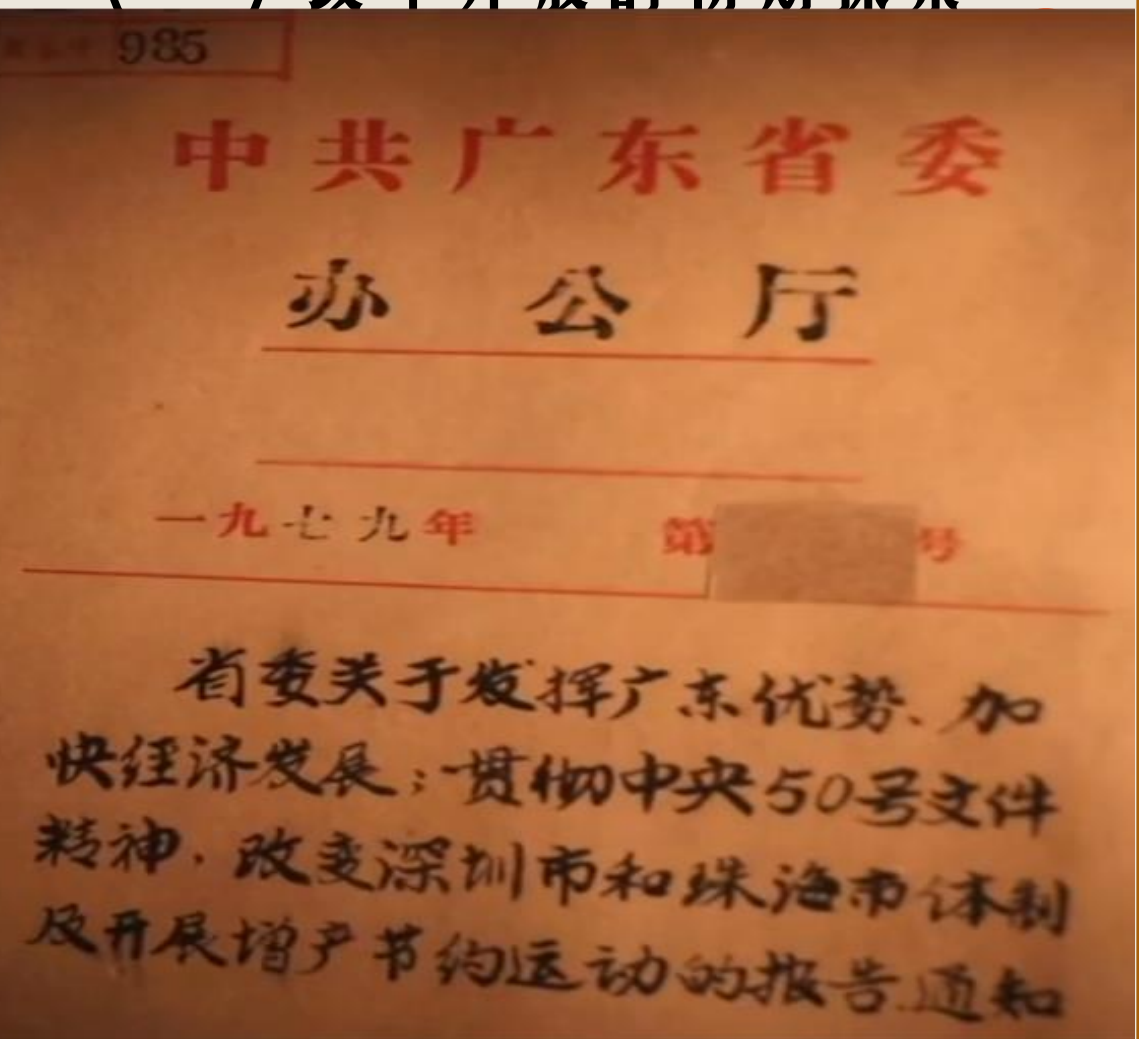 985
中共广东省委
办公厅
一九七九年 第 号
省委关于发挥广东优势、加
快经济发展；贯彻中央50号文件
精神．改变深圳市和珠海市体制
及开展增产节约运动的报告通知